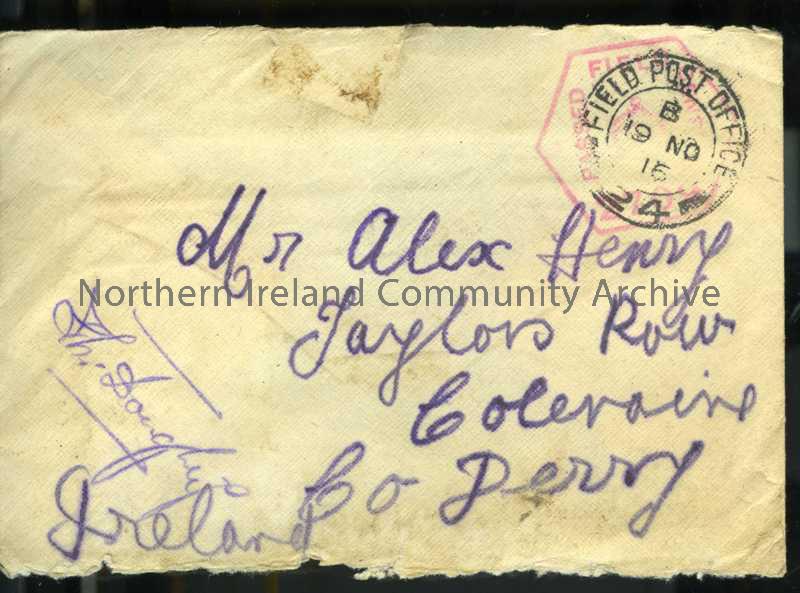 PASSED FIELD
FIELD POST OFFICE
B
19 NO
15
24
Mr Alex Henry
Northern Ireland Community Archive
Taylors Row
Coleraine
Co Derry
Ireland